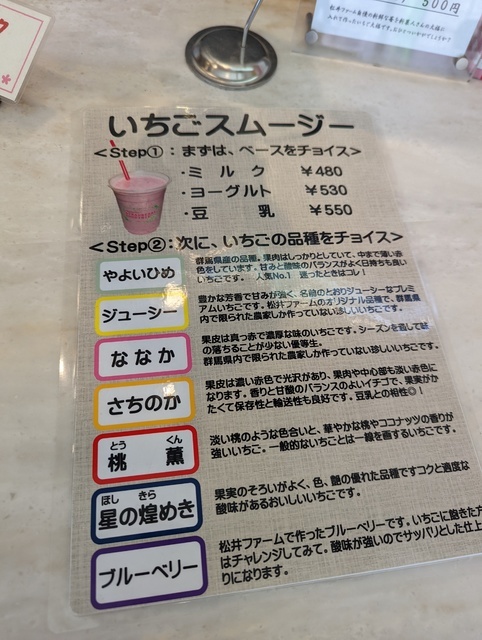 500円
松井ファーム自慢の新鮮な苺と
いちごスムージー
<Step①：まずは、ベースをチョイス>
・ミルク ￥480
・ヨーグルト ￥530
・豆乳 ￥550
<Step②：次に、いちごの品種をチョイス>
やよいひめ
群馬県産の品種。果肉はしっかりとしていて、中まで薄い赤
色をしています。甘みと酸味のバランスがよく日持ちも良い
いちごです。 人気No.1 迷ったときはコレ！
ジューシー
豊かな芳香で甘みが強く、名前のとおりジューシーなプレミ
アムいちごです。松井ファームのオリジナル品種で、群馬県
内で限られた農家しか作っていない珍しいいちごです。
ななか
果皮は真っ赤で濃厚な味のいちごです。シーズンを通して味
の落ちることが少ない優等生。
群馬県内で限られた農家しか作っていない珍しいいちごです。
さちのか
果皮は濃い赤色で光沢があり、果肉や中心部も淡い赤色に
なります。香りと甘酸のバランスのよいイチゴで、果実がか
たくて保存性と輸送性も良好です。豆乳との相性◎！
とう くん
桃薫
淡い桃のような色合いと、華やかな桃やココナッツの香りが
強いいちご。一般的ないちごとは一線を画するいちごです。
ほし きら
星の煌めき
果実のそろいがよく、色、艶の優れた品種ですコクと適度な
酸味があるおいしいいちごです。
ブルーベリー
松井ファームで作ったブルーベリーです。いちごに飽きた方
はチャレンジしてみて。酸味が強いのでサッパリとした仕上
りになります。